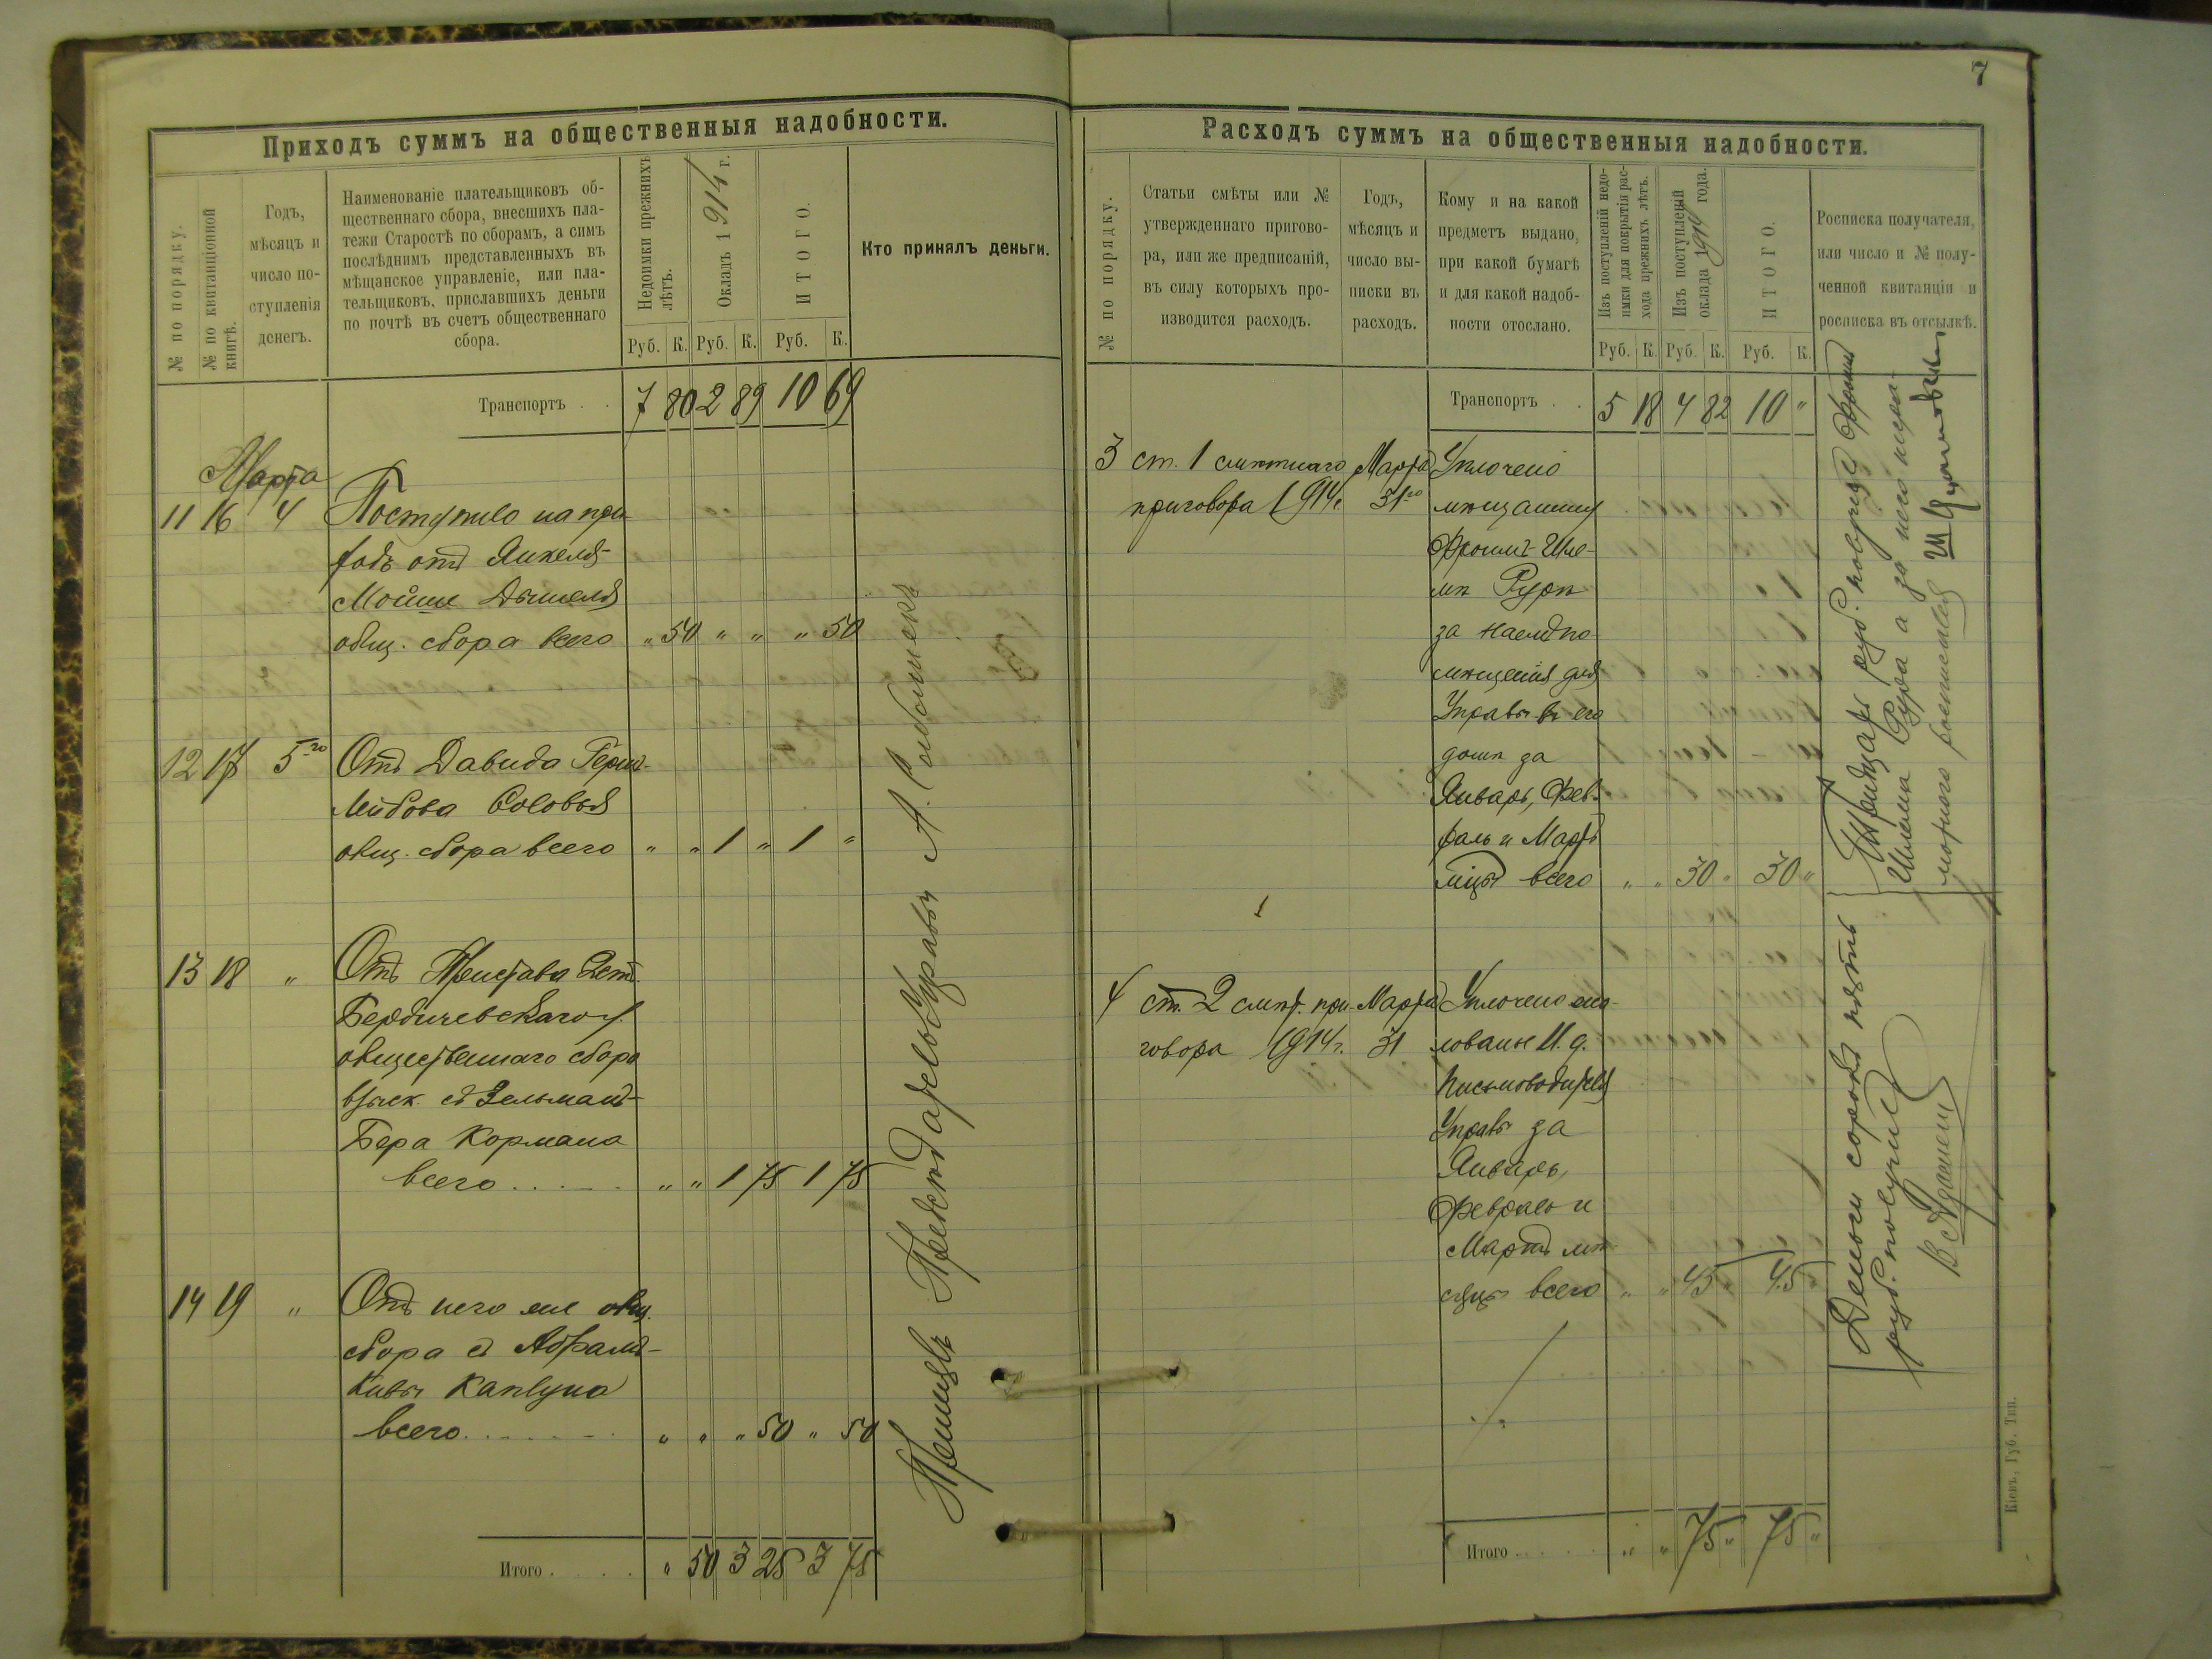 Приходъ суммъ на общественныя надобности.
№ по порядку.
№ по квитанціонной
книгѣ.
Годъ,
мѣсяцъ и
число по-
ступленія
денегъ.
Наименованіе плательщиковъ об-
щественнаго сбора, внесшихъ пла-
тежи Старостѣ по сборамъ, а симъ
послѣднимъ представленныхъ въ
мѣщанское управленіе, или пла-
тельщиковъ, приславшихъ деньги
по почтѣ въ счетъ общественнаго
сбора.
Недоимки прежнихъ
лѣтъ.
Окладъ 1914 г.
ИТОГО.
Руб. К. Руб. К. Руб. К.
Кто принялъ деньги.
Транспортъ . . 7 80 2 89 10 69
Марта
11 16 4 Поступило на при-
ходъ отъ Янкеля-
Мойше
общ. сбора всего „ 50 „ „ „ 50
12 17 5го Отъ Давида Герш-
Лейбова Соловья
общ. сбора всего „ „ 1 „ 1 „
13 18 „ Отъ Пристава
Бердичевскаго у.
общественнаго сбора
взыск. съ Зельмана-
Бера Кормана
всего . . . . „ „ 1 75 1 75
14 19 „ Отъ него же общ.
сбора съ Абрама-
Кивы Каплуна
всего . . . . „ „ „ 50 „ 50
Итого . . . . „ 50 3 25 3 75
А. Соболь
7
Расходъ суммъ на общественныя надобности.
№ по порядку.
Статьи смѣты или №
утвержденнаго пригово-
ра, или же предписаній,
въ силу которыхъ про-
изводится расходъ.
Годъ,
мѣсяцъ и
число вы-
писки въ
расходъ.
Кому и на какой
предметъ выдано,
при какой бумагѣ
и для какой надоб-
ности отослано.
Изъ поступленій недо-
имки для покрытія рас-
хода прежнихъ лѣтъ.
Изъ поступленій
оклада 1914 года.
ИТОГО.
Руб. К. Руб. К. Руб. К.
Росписка получателя,
или число и № полу-
ченной квитанціи и
росписка въ отсылкѣ.
Транспортъ . . 5 18 4 82 10 „
3 ст. 1 смѣтнаго Марта Уплочено
приговора 1914г. 31го мѣщанину
Фроимъ-Шле-
мѣ Рурѣ
за наемъ по-
мѣщенія для
Управы въ его
домѣ за
Январь, Фев-
раль и Мартъ
мцы всего „ „ 30 „ 30 „
Тридцать руб. получилъ Фроимъ
Шлема Рура а за него негра-
мотного росписался
4 ст. 2 смѣт. при- Марта Уплочено жа-
говора 1914г. 31 лованье И. д.
Письмоводителя
Управы за
Январь,
Февраль и
Мартъ мѣ-
сяцы всего „ „ 45 „ 45 „
Деньги сорокъ пять
руб. получилъ
Итого . . . . „ „ 75 „ 75 „
Кіевъ, Губ. Тип.